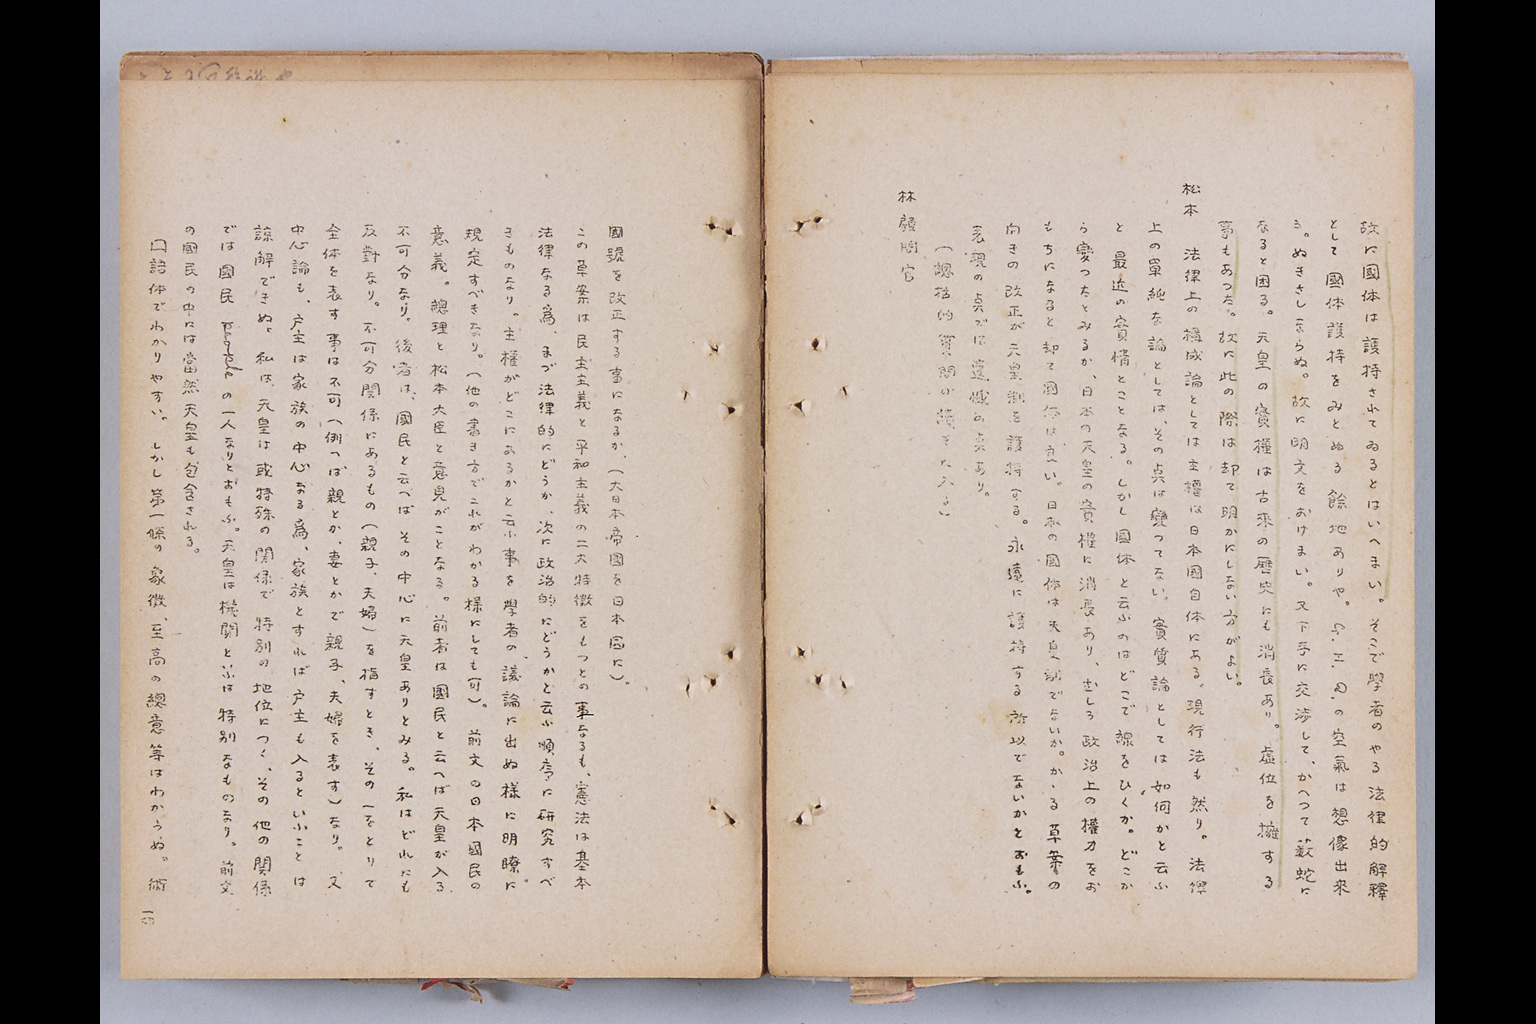 故に國体は護持されてゐるとはいへまい。そこで學者のやる法律的解釋
として國体護持をみとめる餘地ありや。の空氣は想像出来
る。ぬきさしならぬ。故に明文をおけまい。又下手に交渉して、かへつて藪蛇に
なると困る。天皇の實權は古来の歴史にも消長あり。虚位を擁する
事もあつた。故に此の際は却て明かにしない方がよい。
松本 法律上の構成論としては主權は日本國自体にある。現行法も然り。法律
上の單純な論としては、その点は變つてない。實質論としては如何かと云ふ
と最近の實情とことなる。しかし國体と云ふのはどこで線をひくか。どこか
ら變つたとみるか、日本の天皇の實權に消長あり、むしろ政治上の權力をお
もちになると却て國体は危い。日本の國体は天皇制でないか。かゝる草案の
向きの改正が天皇制を護持する。永遠に護持する所以でないかとおもふ。
表現の点では遺憾の点あり。
(總括的質問の續きに入る)
林顧問官
國號を改正する事になるか、(大日本帝國を日本國に)。
この草案は民主主義と平和主義の二大特徴をもつとの事なるも、憲法は基本
法律なる爲、まづ法律的にどうか、次に政治的にどうかと云ふ順序に研究すべ
きものなり。主權がどこにあるかと云ふ事を學者の議論に出ぬ様に明瞭に
規定すべきなり。(他の書き方でこれがわかる様にしても可)。前文の日本國民の
意義。總理と松本大臣と意見がことなる。前者は國民と云へば天皇が入る
不可分なり。後者は、國民と云へばその中心に天皇ありとみる。私はどれにも
反對なり。不可分関係にあるもの(親子、夫婦)を指すとき、その一をとりて
全体を表す事は不可(例へば親とか、妻とかで親子、夫婦を表す)なり。又
中心論も、戸主は家族の中心なる爲、家族とすれば戸主も入るといふことは
諒解できぬ。私は、天皇は或特殊の関係で特別の地位につく、その他の関係
では國民 People の一人なりとおもふ。天皇は機関と云ふは特別なものなり。前文
の國民の中には當然天皇も包含される。
口語体でわかりやすい。しかし第一條の象徴、至高の總意等はわからぬ。術